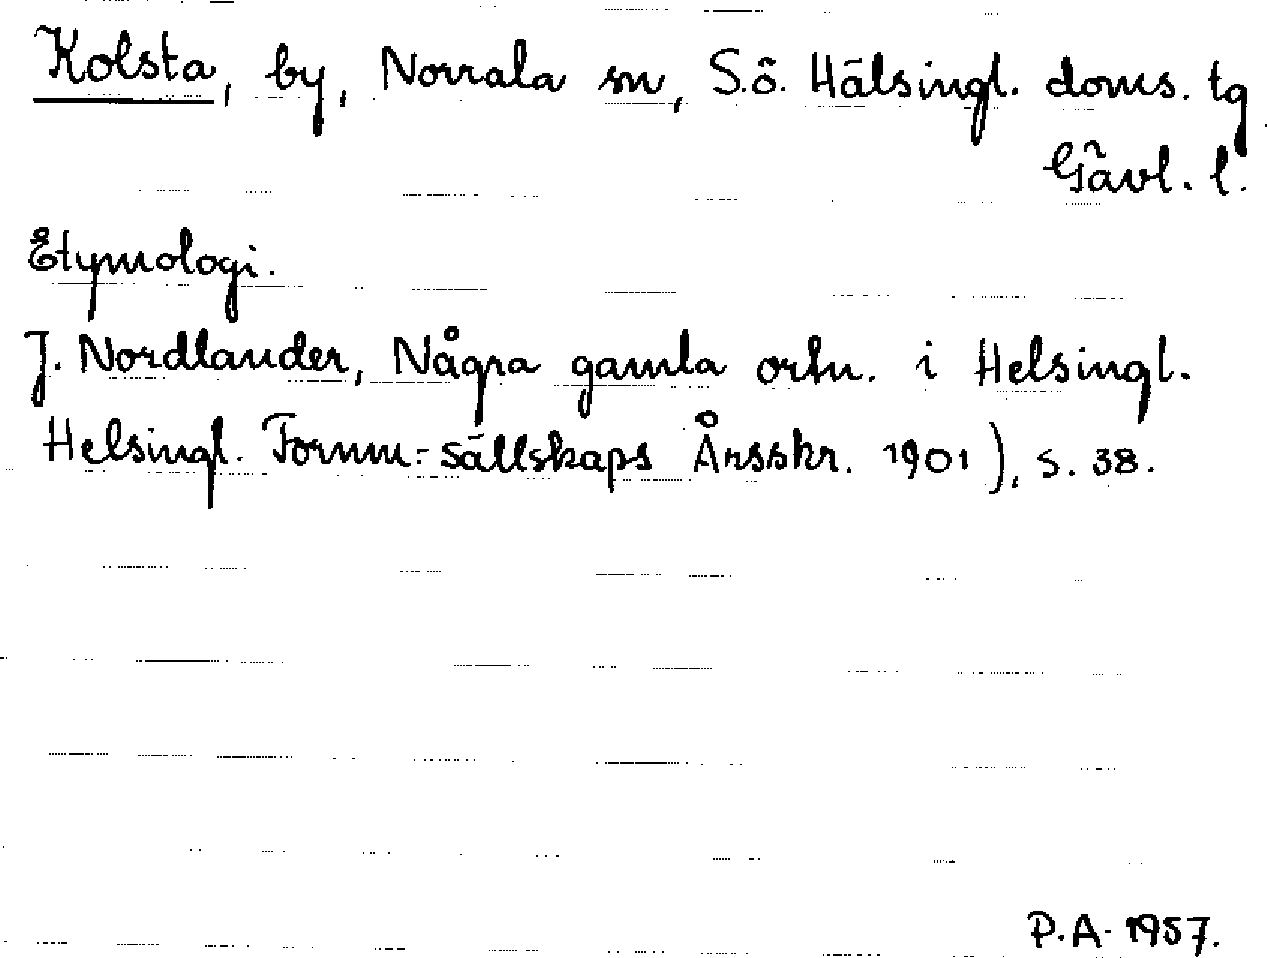 Kolsta, by, Norrala sn, S.ö. Hälsingl. doms. tg
Gävl. l.
Etymologi.
J. Nordlander, Några gamla ortn. i Helsingl.
Helsingl. Fornm.-sällskaps Årsskr. 1901), s. 38.
P.A. 1957.